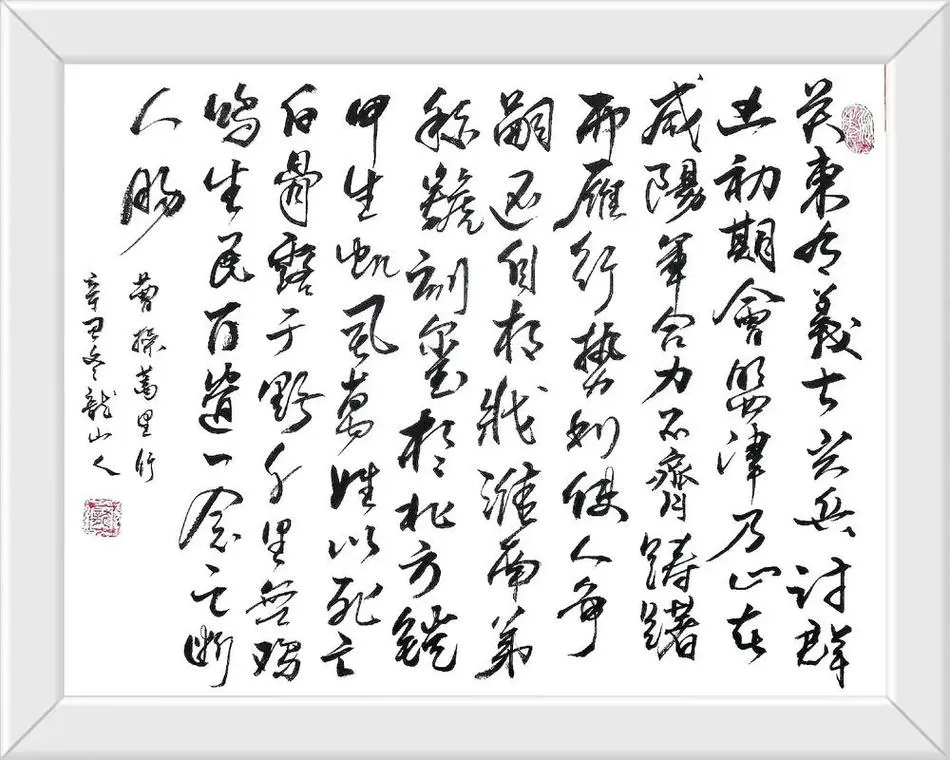 关東有義士兴兵討群
凶初期會盟津乃心在
咸陽軍合力不齊躊躇
而雁行势利使人争
嗣还自相戕淮南弟
称號刻璽於北方鎧
甲生虮虱萬姓以死亡
白骨露于野千里無鸡
鸣生民百遺一念之断
人肠
曹操蒿里行
辛丑冬龍山人